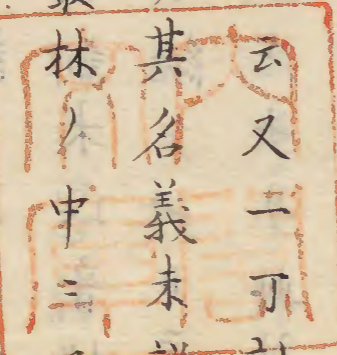 云又一丁
其名義未詳
林ノ中ニ